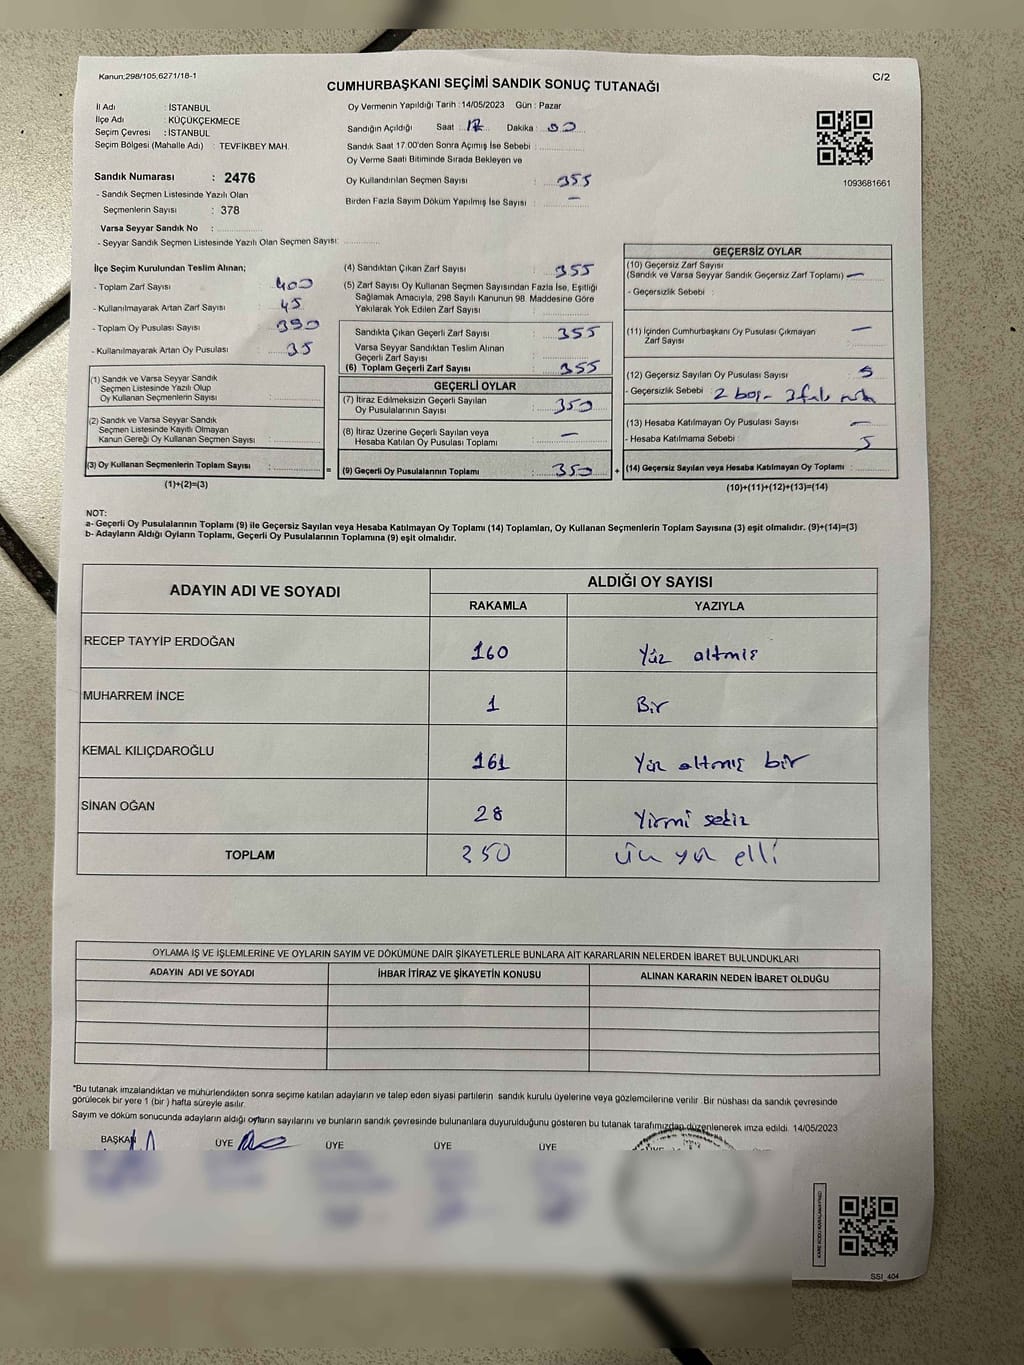 Kanun:298/105,6271/18-1
C/2
CUMHURBAŞKANI SEÇİMİ SANDIK SONUÇ TUTANAĞI
İl Adı : İSTANBUL
İlçe Adı : KÜÇÜKÇEKMECE
Seçim Çevresi : İSTANBUL
Seçim Bölgesi (Mahalle Adı) : TEVFİKBEY MAH.
Sandık Numarası : 2476
- Sandık Seçmen Listesinde Yazılı Olan
Seçmenlerin Sayısı : 378
Varsa Seyyar Sandık No :
- Seyyar Sandık Seçmen Listesinde Yazılı Olan Seçmen Sayısı:
Oy Vermenin Yapıldığı Tarih : 14/05/2023 Gün : Pazar
Sandığın Açıldığı Saat : 17 Dakika : 00
Sandık Saat 17:00'den Sonra Açmış İse Sebebi :
Oy Verme Saati Bitiminde Sırada Bekleyen ve
Oy Kullandırılan Seçmen Sayısı : 355
Birden Fazla Sayım Döküm Yapılmış İse Sayısı : —
1093681661
İlçe Seçim Kurulundan Teslim Alınan;
- Toplam Zarf Sayısı : 400
- Kullanılmayarak Artan Zarf Sayısı : 45
- Toplam Oy Pusulası Sayısı : 390
- Kullanılmayarak Artan Oy Pusulası : 35
(1) Sandık ve Varsa Seyyar Sandık
Seçmen Listesinde Yazılı Olup
Oy Kullanan Seçmenlerin Sayısı :
(2) Sandık ve Varsa Seyyar Sandık
Seçmen Listesinde Kayıtlı Olmayan
Kanun Gereği Oy Kullanan Seçmen Sayısı :
(3) Oy Kullanan Seçmenlerin Toplam Sayısı : =
(1)+(2)=(3)
(4) Sandıktan Çıkan Zarf Sayısı : 355
(5) Zarf Sayısı Oy Kullanan Seçmen Sayısından Fazla İse, Eşitliği
Sağlamak Amacıyla, 298 Sayılı Kanunun 98. Maddesine Göre
Yakılarak Yok Edilen Zarf Sayısı :
Sandıkta Çıkan Geçerli Zarf Sayısı : 355
Varsa Seyyar Sandıktan Teslim Alınan
Geçerli Zarf Sayısı :
(6) Toplam Geçerli Zarf Sayısı : 355
GEÇERLİ OYLAR
(7) İtiraz Edilmeksizin Geçerli Sayılan
Oy Pusulalarının Sayısı : 350
(8) İtiraz Üzerine Geçerli Sayılan veya
Hesaba Katılan Oy Pusulası Toplamı : —
(9) Geçerli Oy Pusulalarının Toplamı : 350 +
GEÇERSİZ OYLAR
(10) Geçersiz Zarf Sayısı
(Sandık ve Varsa Seyyar Sandık Geçersiz Zarf Toplamı) : —
- Geçersizlik Sebebi :
(11) İçinden Cumhurbaşkanı Oy Pusulası Çıkmayan
Zarf Sayısı : —
(12) Geçersiz Sayılan Oy Pusulası Sayısı : 5
- Geçersizlik Sebebi : 2 boş- 3
(13) Hesaba Katılmayan Oy Pusulası Sayısı : —
- Hesaba Katılmama Sebebi :
5
(14) Geçersiz Sayılan veya Hesaba Katılmayan Oy Toplamı :
(10)+(11)+(12)+(13)=(14)
NOT:
a- Geçerli Oy Pusulalarının Toplamı (9) ile Geçersiz Sayılan veya Hesaba Katılmayan Oy Toplamı (14) Toplamları, Oy Kullanan Seçmenlerin Toplam Sayısına (3) eşit olmalıdır. (9)+(14)=(3)
b- Adayların Aldığı Oyların Toplamı, Geçerli Oy Pusulalarının Toplamına (9) eşit olmalıdır.
ADAYIN ADI VE SOYADI ALDIĞI OY SAYISI
RAKAMLA YAZIYLA
RECEP TAYYİP ERDOĞAN 160 Yüz altmış
MUHARREM İNCE 1 Bir
KEMAL KILIÇDAROĞLU 161 Yüz altmış bir
SİNAN OĞAN 28 Yirmi sekiz
TOPLAM 350 Üç yüz elli
OYLAMA İŞ VE İŞLEMLERİNE VE OYLARIN SAYIM VE DÖKÜMÜNE DAİR ŞİKAYETLERLE BUNLARA AİT KARARLARIN NELERDEN İBARET BULUNDUKLARI
ADAYIN ADI VE SOYADI İHBAR İTİRAZ VE ŞİKAYETİN KONUSU ALINAN KARARIN NEDEN İBARET OLDUĞU
*Bu tutanak imzalandıktan ve mühürlendikten sonra seçime katılan adayların ve talep eden siyasi partilerin sandık kurulu üyelerine veya gözlemcilerine verilir. Bir nüshası da sandık çevresinde
görülecek bir yere 1 (bir) hafta süreyle asılır.
Sayım ve döküm sonucunda adayların aldığı oyların sayılarını ve bunların sandık çevresinde bulunanlara duyurulduğunu gösteren bu tutanak tarafımızdan düzenlenerek imza edildi. 14/05/2023
BAŞKAN ÜYE ÜYE ÜYE ÜYE
SSI_404